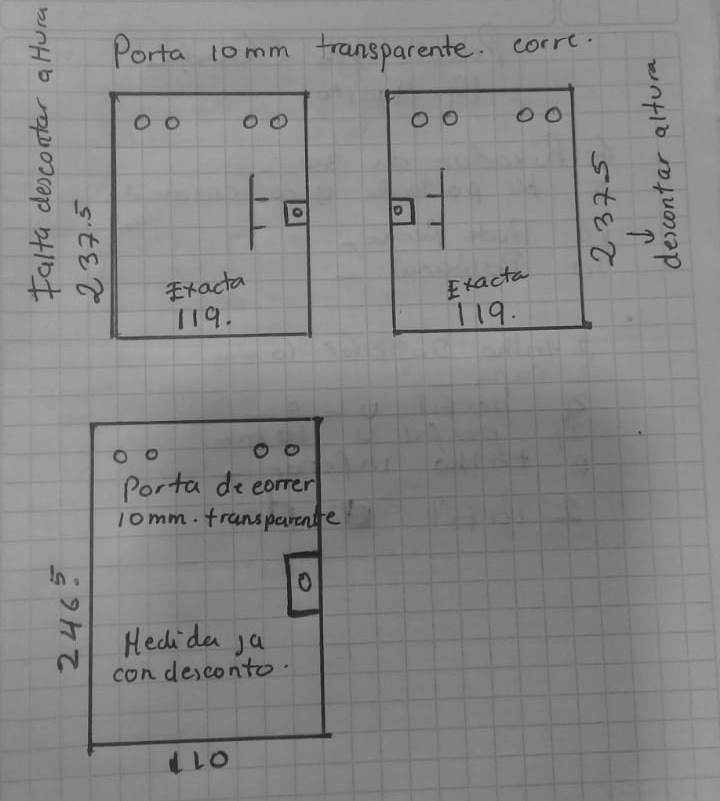 Porta 10mm transparente. corre.
Falta descontar altura
237.5
Exacta
119.
Exacta
119.
237.5
descontar altura
Porta de correr
10mm. transparente
246.5.
Medida ja
con desconto.
110